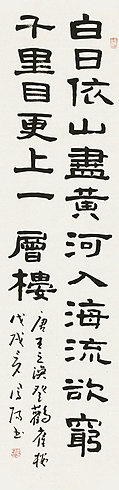 白日依山盡黃河入海流欲窮
千里目更上一層樓
唐王之渙登鸛雀樓
戊戌夏書